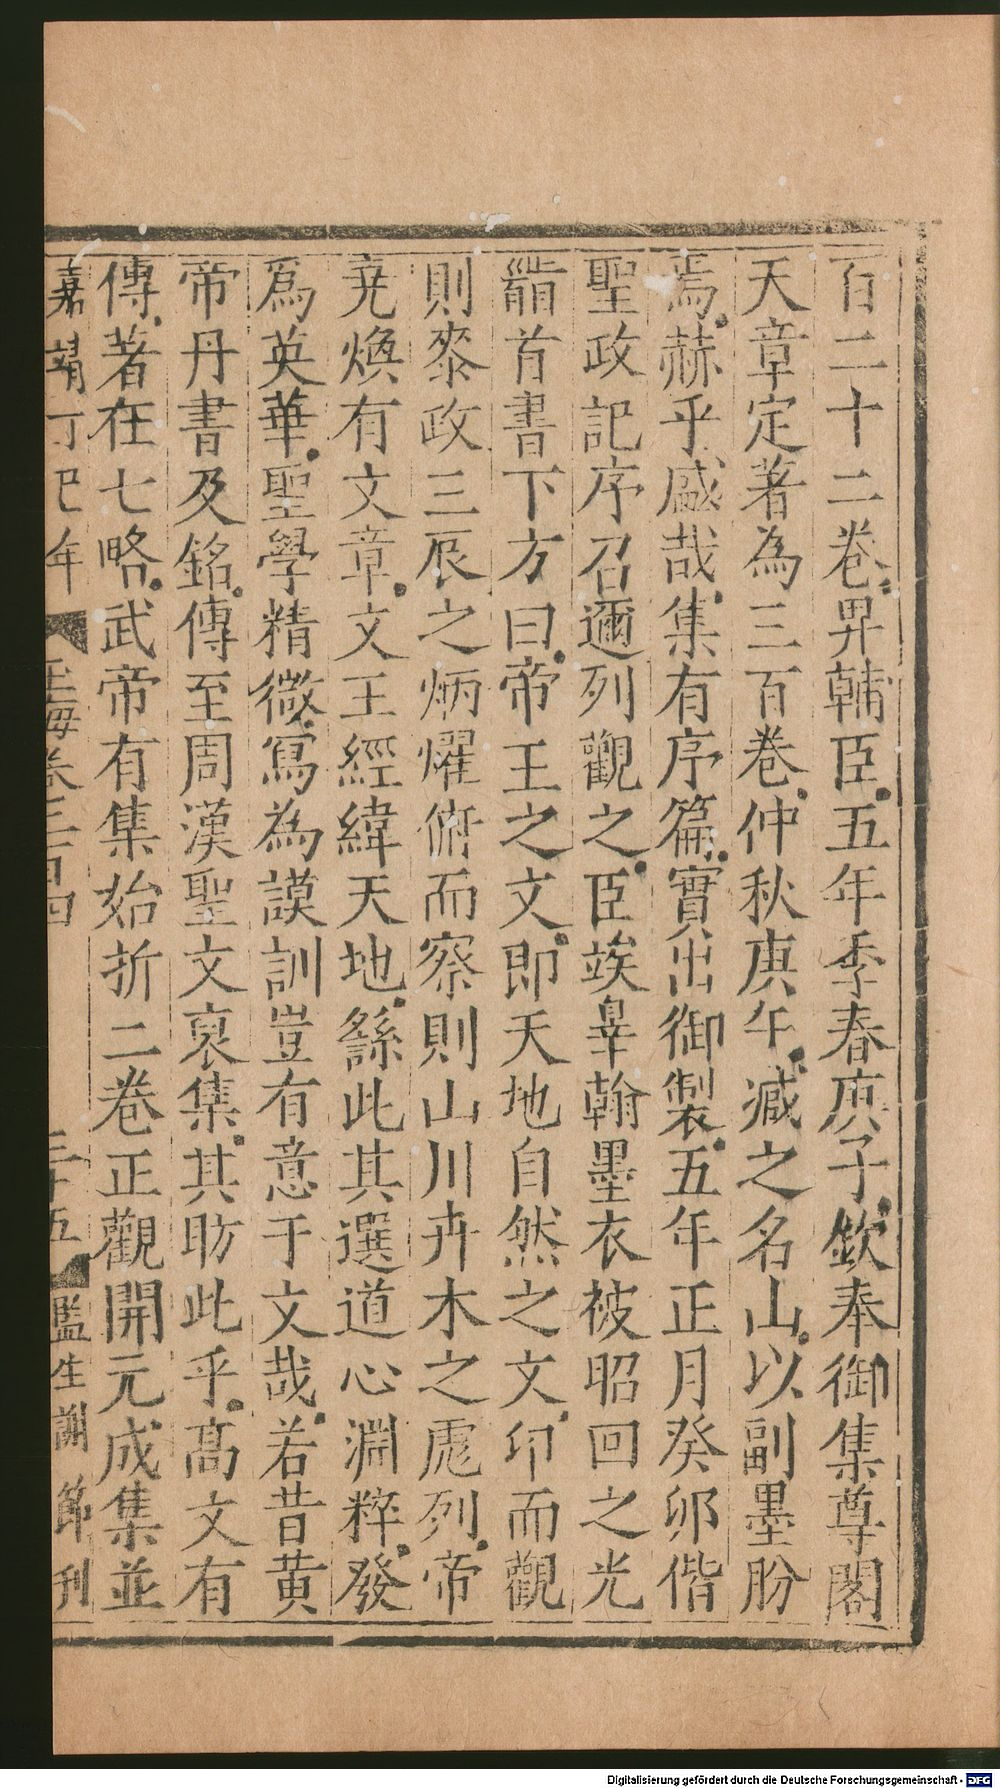 百二十二卷畀輔臣五年季春庚子欽奉御集尊閣
天章定著為三百卷仲秋庚午臧之名山以副墨肦
焉赫乎盛哉集有序篇實出御製五年正月癸卯偕
聖政記序召邇列觀之臣竢辠翰墨衣被昭回之光
䭫首書下方曰帝王之文即天地自然之文卬而觀
則泰政三辰之炳燿俯而察則山川卉木之彪列帝
堯煥有文章文王經緯天地繇此其選道心淵粹發
爲英華聖學精微寫為謨訓豈有意于文哉若昔黃
帝丹書及銘傳至周漢聖文裒集其昉此乎高文有
傳著在七略武帝有集始折二卷正觀開元成集並
嘉靖丁巳年 玉海卷三百四 三十五 監生謝節刊
Digitalisierung gefördert durch die Deutsche Forschungsgemeinschaft - DFG